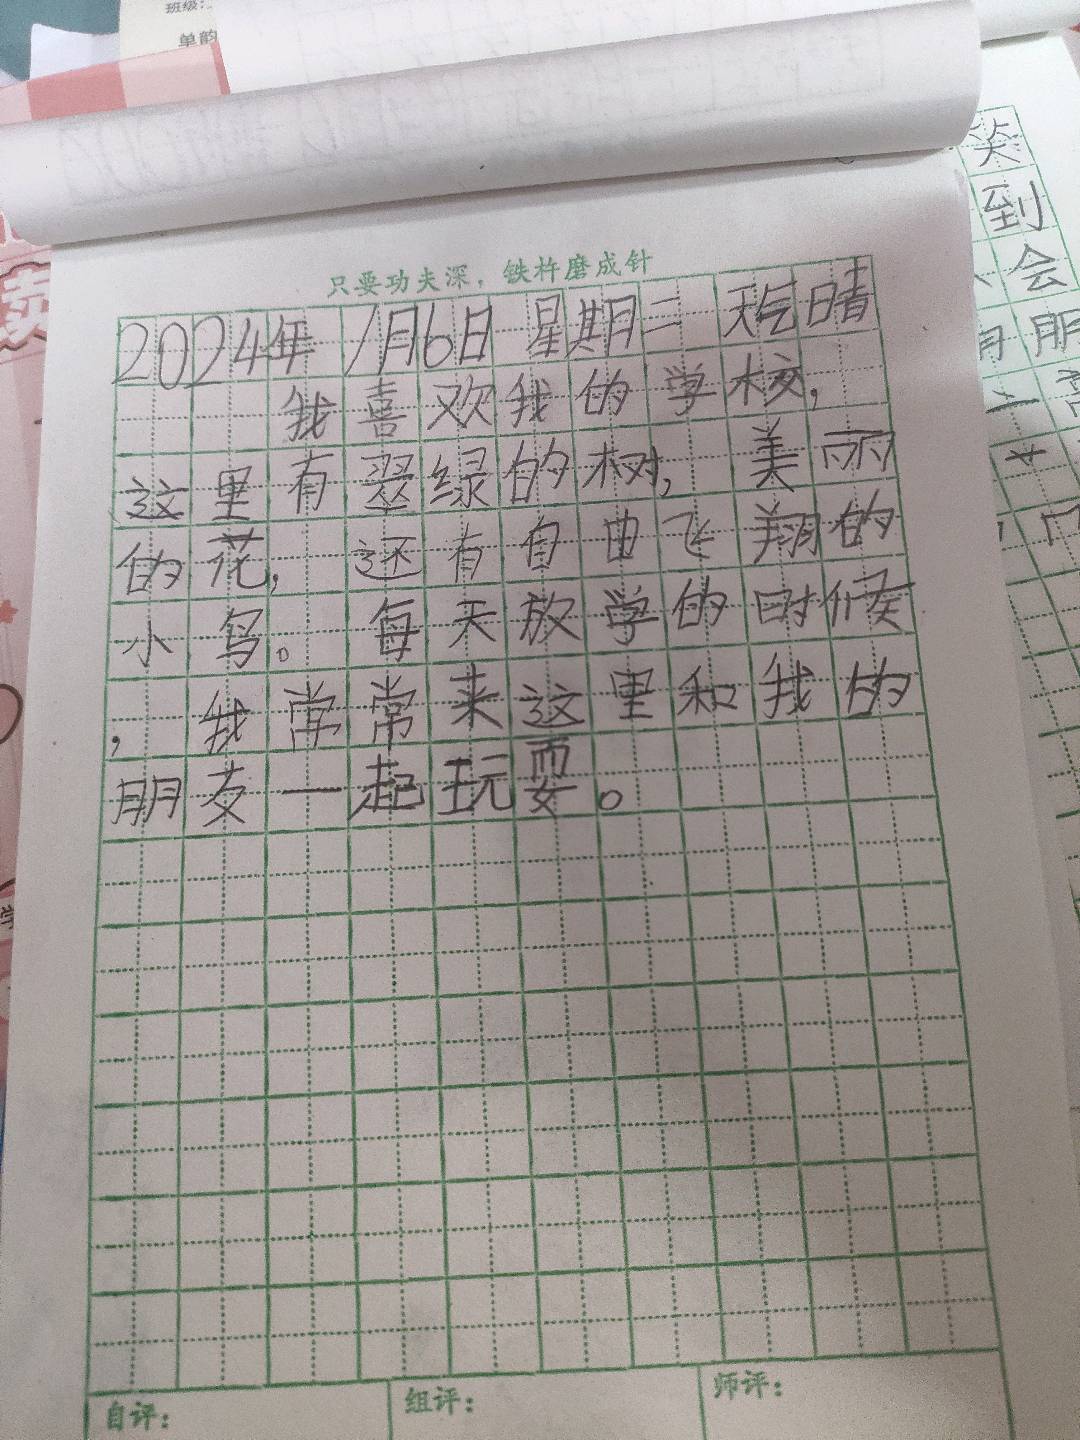 班级:
单韵
只要功夫深，铁杵磨成针
2024年 1月6日 星期二 天气晴
我喜欢我的学校，
这里有翠绿的树，美丽
的花，还有自由飞翔的
小鸟。每天放学的时候
，我常常来这里和我的
朋友一起玩耍。
自评：
组评：
师评：
卖
到
会
朋